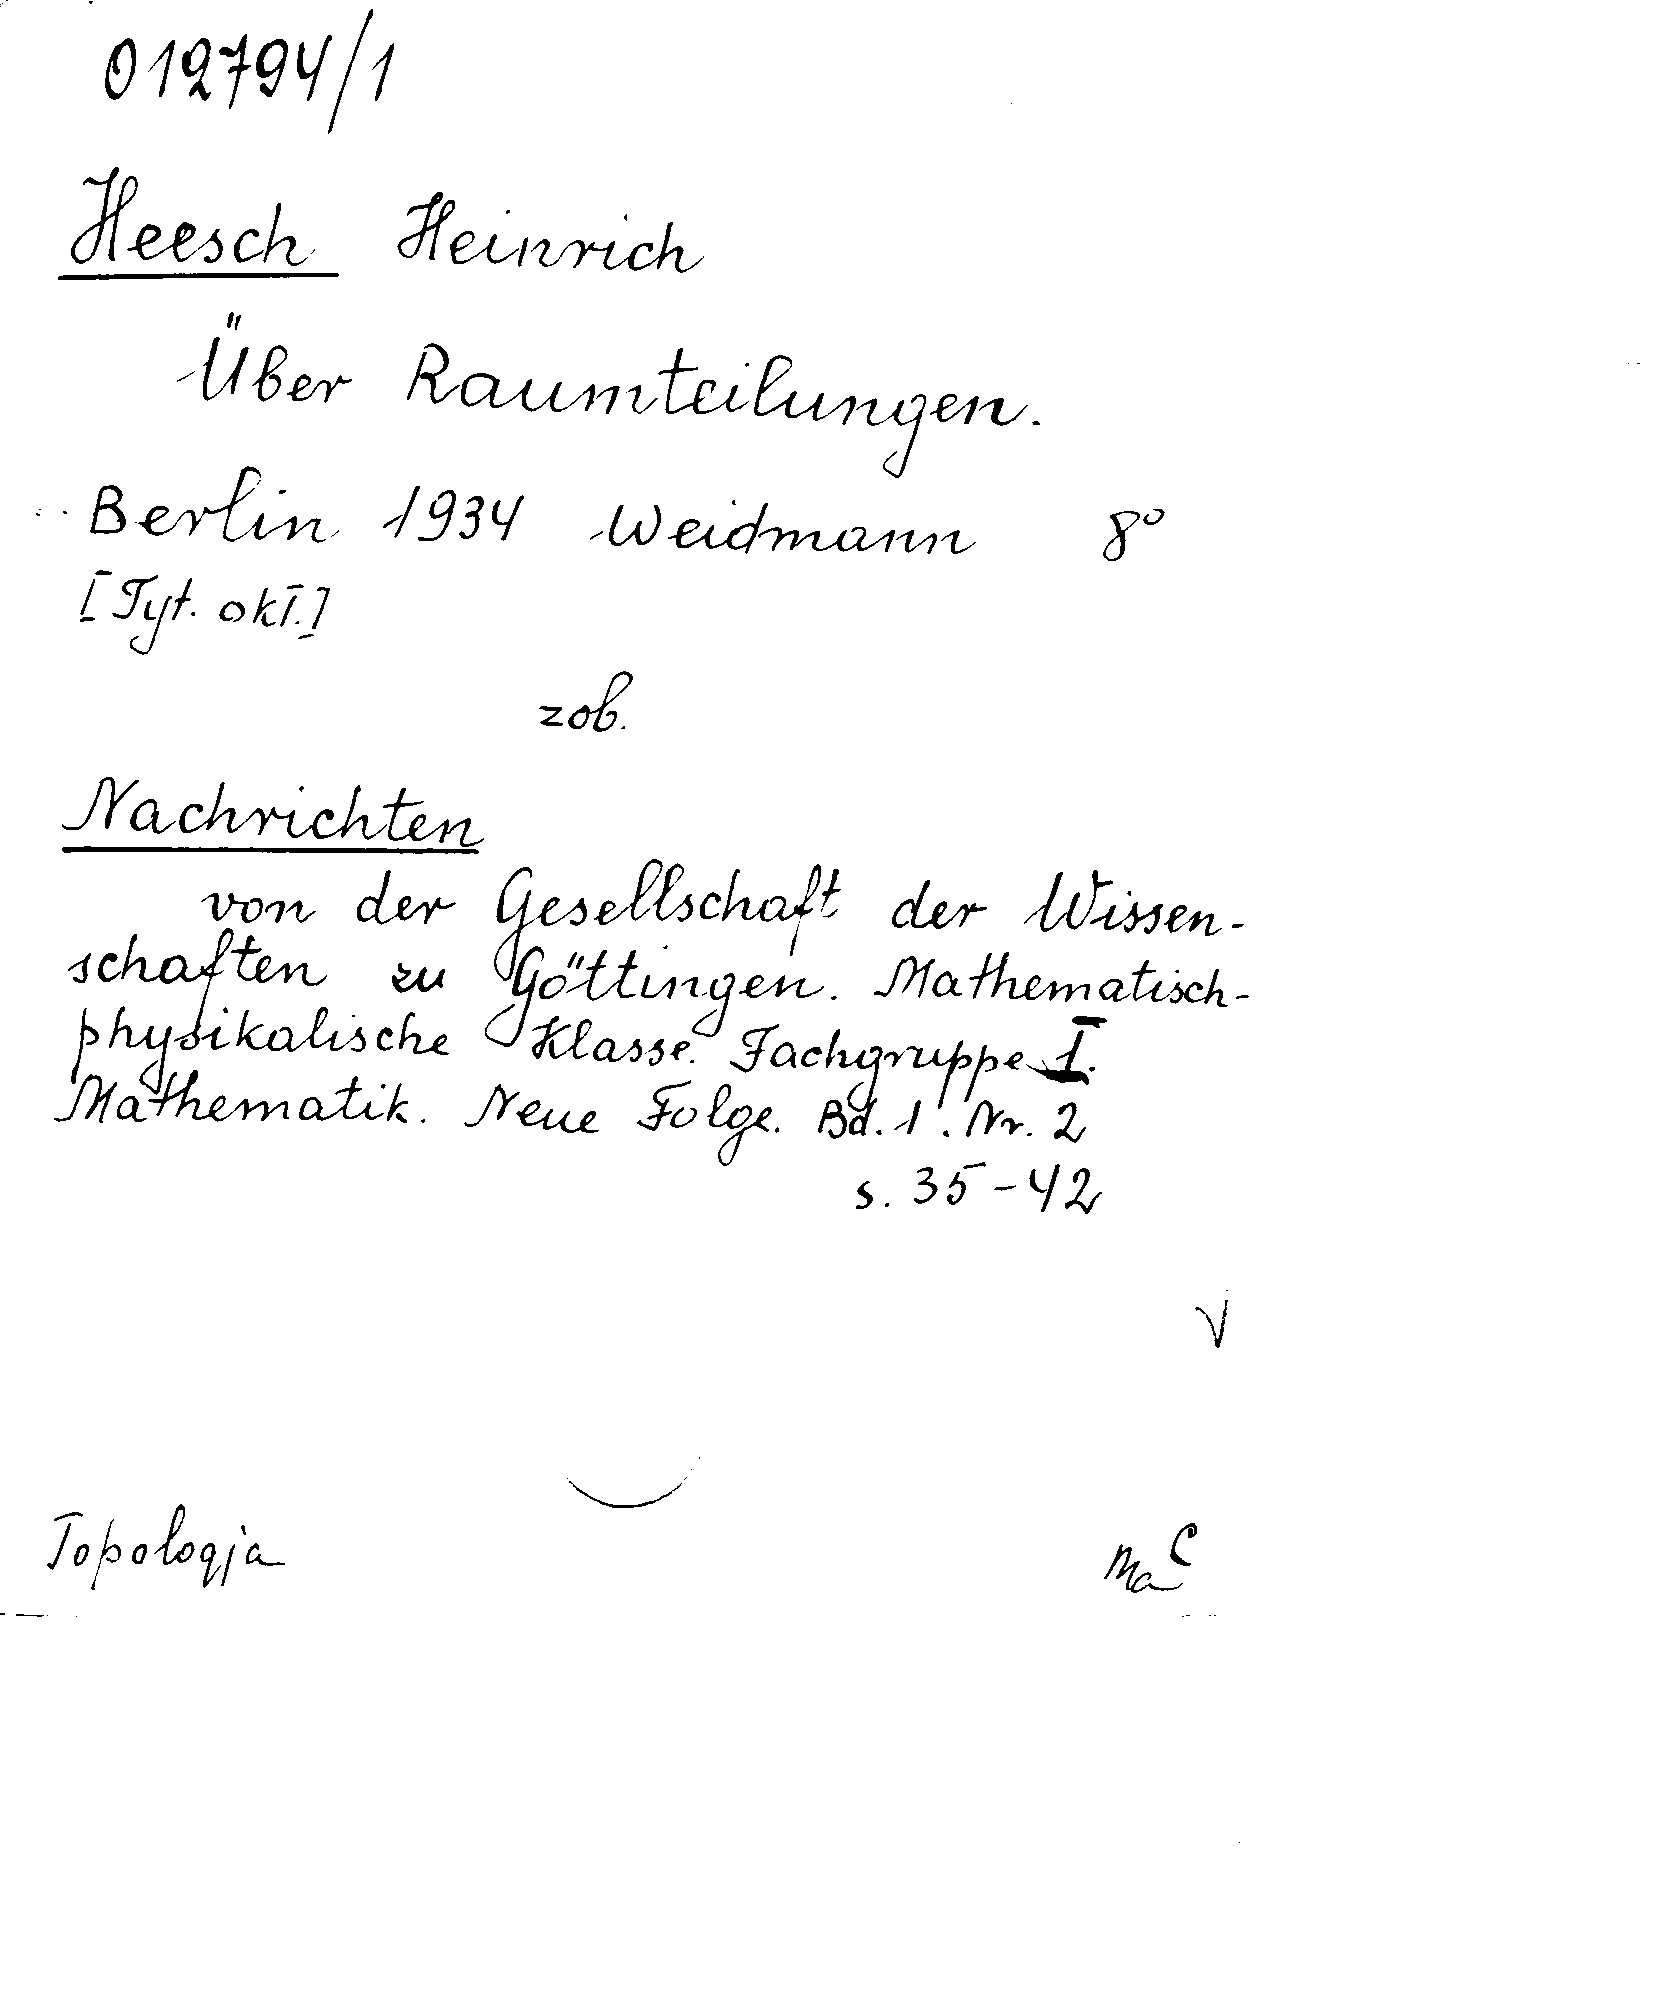 012794/1
Heesch Heinrich
Über Raumteilungen.
Berlin 1934 Weidmann 8°
[Tyt. okł.]
zob.
Nachrichten
von der Gesellschaft der Wissen-
schaften zu Göttingen. Mathematisch-
physikalische Klasse. Fachgruppe I.
Mathematik. Neue Folge. Bd. 1. Nr. 2
s. 35-42
V
Topologja
Ma C